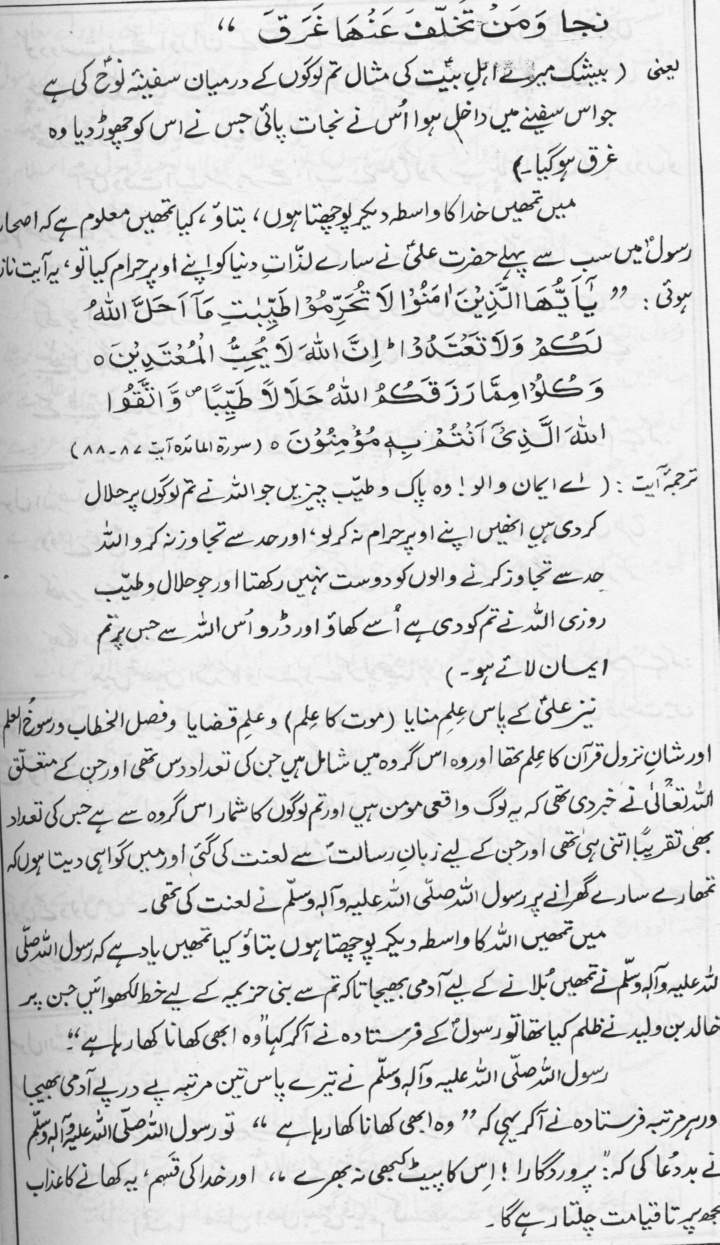 نَجا وَمَنْ تَخَلَّفَ عَنْهَا غَرَقَ “
یعنی ( بیشک میرے اہلِ بیتؑ کی مثال تم لوگوں کے درمیان سفینۂ نوحؑ کی ہے
جو اس سفینے میں داخل ہوا اُس نے نجات پائی جس نے اس کو چھوڑ دیا وہ
غرق ہوگیا۔)
میں تمھیں خدا کا واسطہ دیکر پوچھتا ہوں، بتاؤ، کیا تمھیں معلوم ہے کہ اصحاب
رسولؐ میں سب سے پہلے حضرت علیؑ نے سارے لذّاتِ دنیا کو اپنے اوپر حرام کیا تو، یہ آیت ناز
ہوئی : ” يٰٓاَيُّهَا الَّذِيْنَ اٰمَنُوْا لَا تُحَرِّمُوْا طَيِّبٰتِ مَآ اَحَلَّ اللهُ
لَكُمْ وَلَا تَعْتَدُوْا ؕ اِنَّ اللهَ لَا يُحِبُّ الْمُعْتَدِيْنَ ○
وَكُلُوْا مِمَّا رَزَقَكُمُ اللهُ حَلٰلًا طَيِّبًا ۪ وَّاتَّقُوا
اللهَ الَّذِيْٓ اَنْتُمْ بِهٖ مُؤْمِنُوْنَ ○ ( سورۃ المائدہ آیت ۸۷۔۸۸ )
ترجمۂ آیت : ( اے ایمان والو! وہ پاک و طیّب چیزیں جو اللہ نے تم لوگوں پر حلال
کردی ہیں انھیں اپنے اوپر حرام نہ کرلو، اور حد سے تجاوز نہ کرو اللہ
حد سے تجاوز کرنے والوں کو دوست نہیں رکھتا اور جو حلال و طیّب
روزی اللہ نے تم کو دی ہے اُسے کھاؤ اور ڈرو اُس اللہ سے جس پر تم
ایمان لائے ہو۔ )
نیز علیؑ کے پاس علمِ منایا (موت کا علم) و علمِ قضایا و فصل الخطاب و رسوخُ العلم
اور شانِ نزول قرآن کا علم تھا اور وہ اس گروہ میں شامل ہیں جن کی تعداد دس تھی اور جن کے متعلّق
اللہ تعالٰی نے خبر دی تھی کہ یہ لوگ واقعی مومن ہیں اور تم لوگوں کا شمار اس گروہ سے ہے جس کی تعداد
بھی تقریبًا اتنی ہی تھی اور جن کے لیے زبانِ رسالتؐ سے لعنت کی گئی اور میں گواہی دیتا ہوں کہ
تمھارے سارے گھرانے پر رسول اللہ صلّی اللہ علیہ وآلہٖ وسلّم نے لعنت کی تھی۔
میں تمھیں اللہ کا واسطہ دیکر پوچھتا ہوں بتاؤ کیا تمھیں یاد ہے کہ رسول اللہ صلّی
للہ علیہ وآلہٖ وسلّم نے تمھیں بُلانے کے لیے آدمی بھیجا تاکہ تم سے بنی خزیمہ کے لیے خط لکھوائیں جن پر
خالد بن ولید نے ظلم کیا تھا تو رسولؐ کے فرستادہ نے آکر کہا ”وہ ابھی کھانا کھا رہا ہے“۔
رسول اللہ صلّی اللہ علیہ وآلہٖ وسلّم نے تیرے پاس تین مرتبہ پے در پے آدمی بھیجا
ور ہر مرتبہ فرستادہ نے آکر یہی کہ ” وہ ابھی کھانا کھا رہا ہے “ تو رسول اللہ صلّی اللہ علیہ وآلہٖ وسلّم
نے بددُعا کی کہ : ”پروردگارا ! اِس کا پیٹ کبھی نہ بھرے “ اور خدا کی قسم، یہ کھانے کا عذاب
جھ پر تا قیامت چلتا رہے گا۔